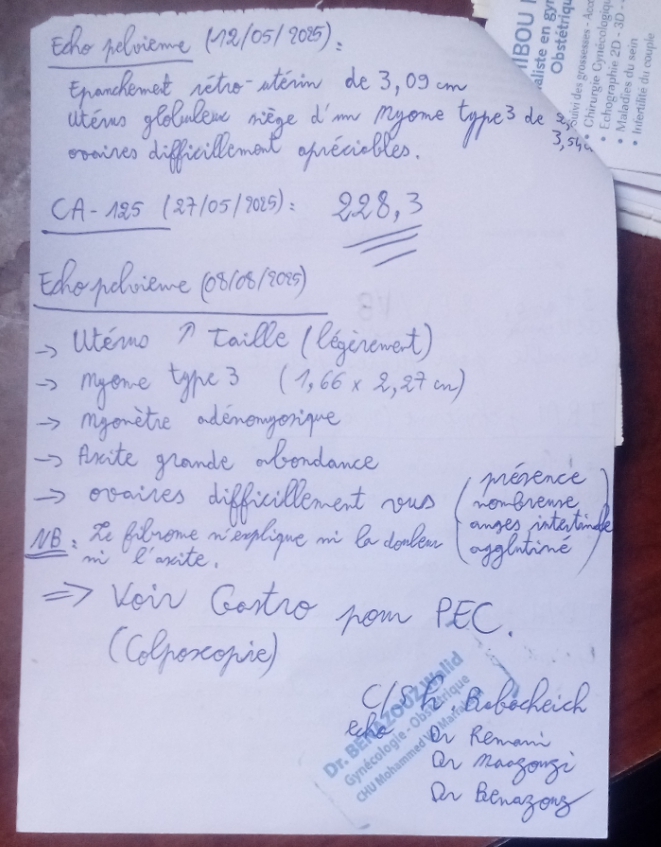 Echo pelvienne (12/05/2025) :
Epanchement rétro-utérin de 3,09 cm
Utérus globuleux siège d'un Myome type 3 de
3,54
ovaires difficillement apréciables.
CA-125 (27/05/2025) : 228,3
Echo pelvienne (08/08/2025)
→ Utérus ↑ taille (légèrement)
→ Myome type 3 (1,66 x 2,27 cm)
→ Myomètre adénomyosique
→ Axite grande abondance
→ ovaires difficillement vus (présence
nombreuse
anges intertinale
agglutiné)
NB : Le fibrome n'explique ni la douleur
ni l'axite.
=> Voir Gastro pour PEC.
(Colposcopie)
C/
echo
Dr Remani
Dr Maazouzi
Dr Benazouz
Dr. BENAZOUZ Walid
Gynécologie - Obstétrique
CHU Mohammed VI
MIBOU
aliste en gyn
Obstétriqu
Suivi des grossesses - Acc
• Chirurgie Gynécologiqu
• Echographie 2D - 3D -
• Maladies du sein
• Infertilité du couple